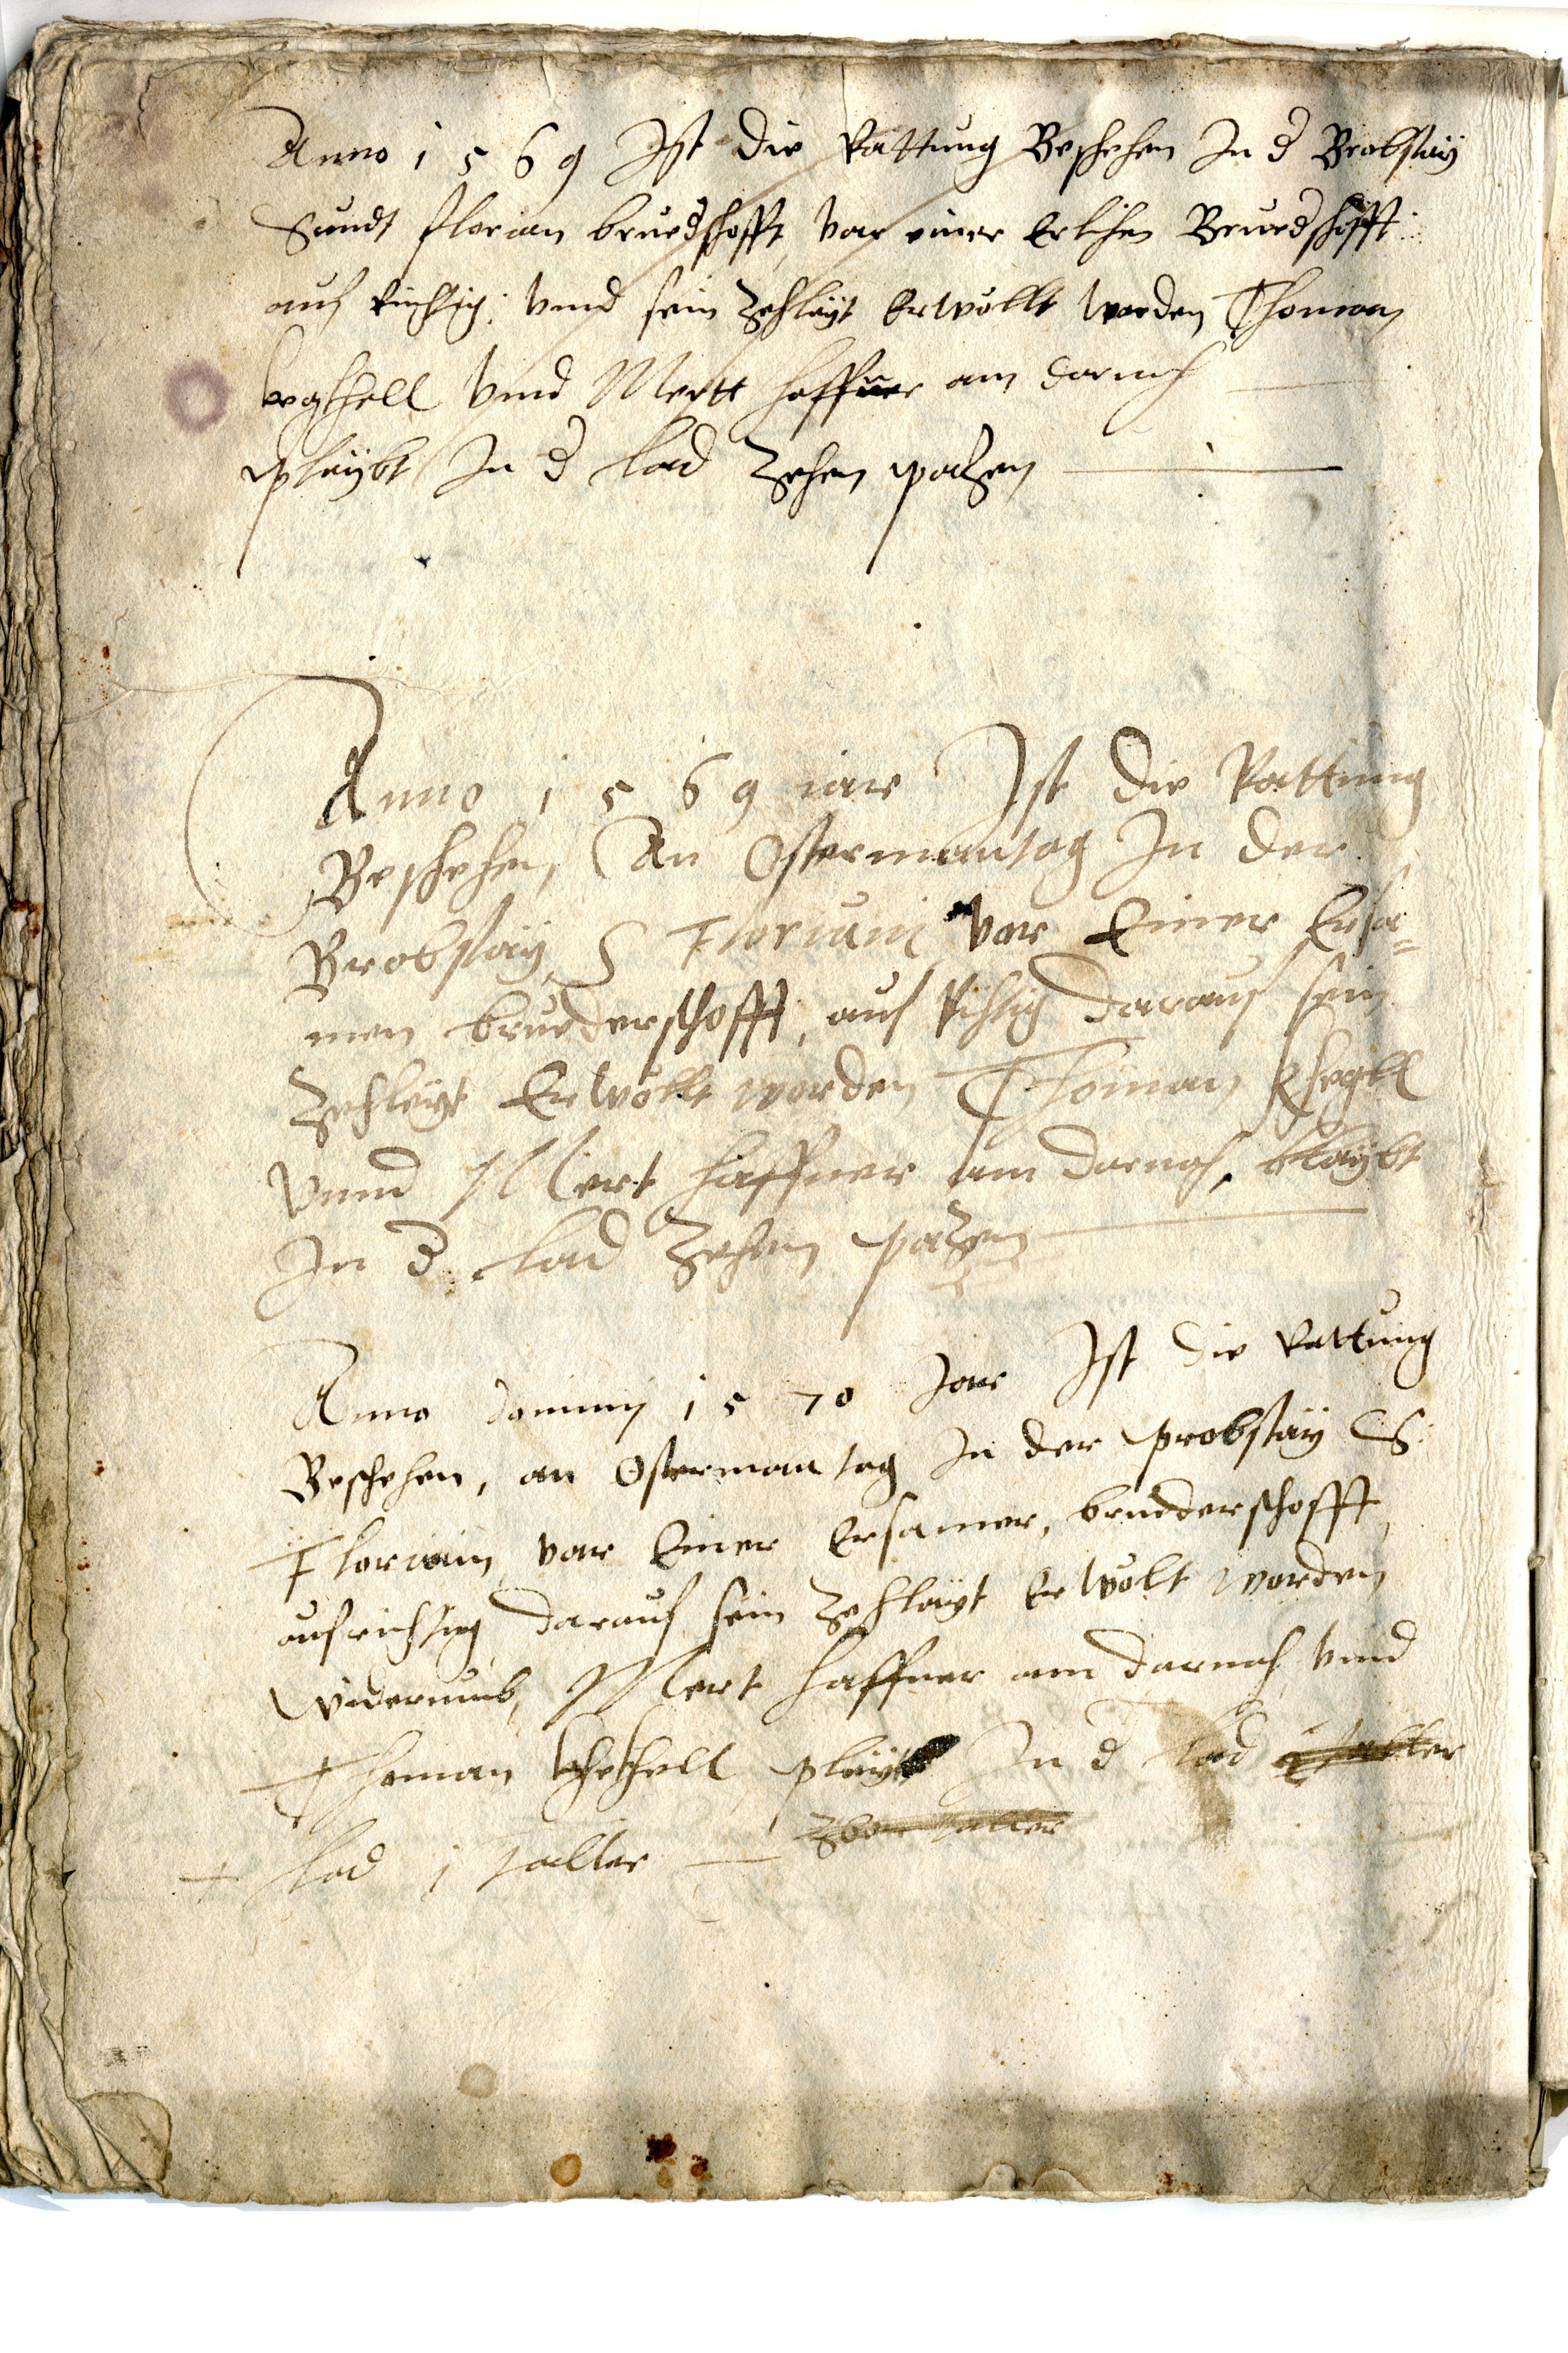 Anno 1569 Ist die Rattung Beschehen In d Brobstaÿ
Sandt florian bruedschafft, vor einer Erlichen Bruedschafft
auf richtig; vnnd sein Zechleÿt Erwöllt worden Thoman
vnnd Mertt haffner am darnach
pleÿbt In d lad Zehen paczen
Anno 1569 iar Ist die Rattung
Beschehen, An Ostermantag In der
Brobstaÿ, S Floriani vor Einer Ersa=
men bruederschofft, auf Richtig darauf sein
Zechleÿt Erwöllt worden Thoman Khegll
Vnnd Mert haffner am darnach, blaÿbt
In d lad Zehen paczen
Anno dominj 1570 Jar Ist die Rattung
Beschehen, an Ostermantag In der probstaÿ S
Floriain, vor Einer Ersamer, bruederschofft
aufrichtig darauf sein Zechlaÿt Erwölt worden
widerumb, Mert haffner am darnach vnnd
Thoman pleÿt In d lad
lad 1 taller Zwen taller